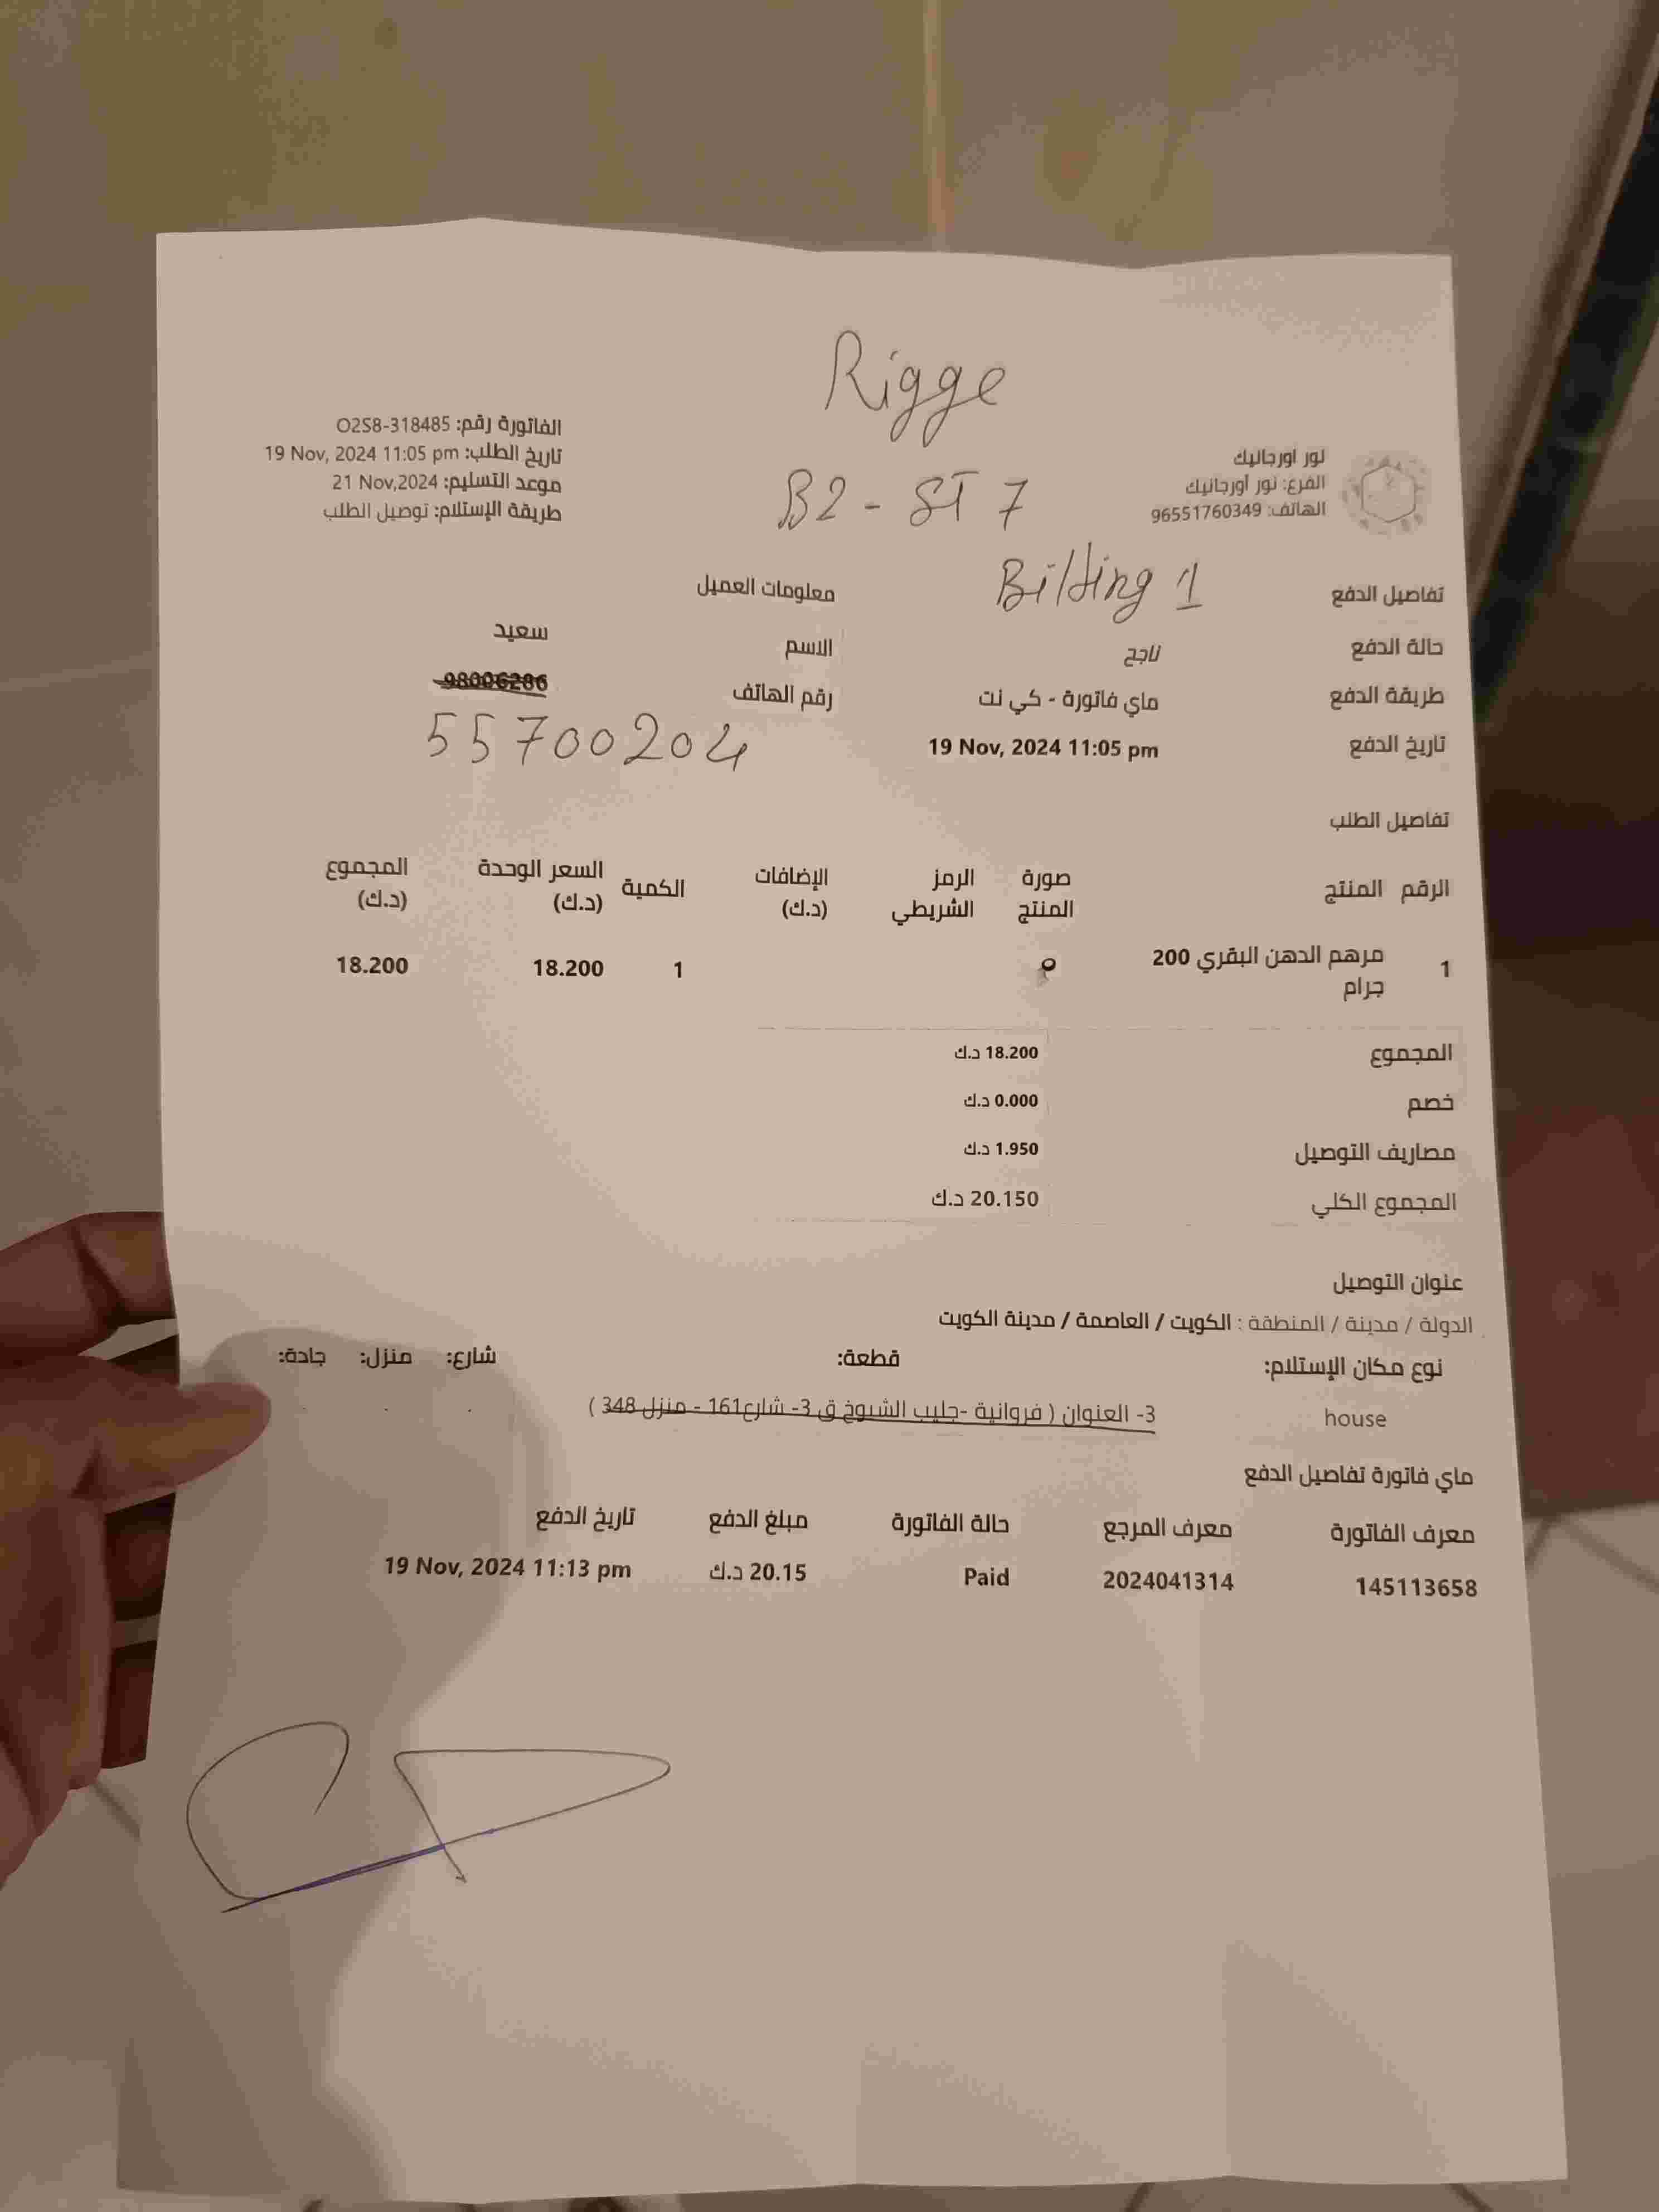 Rigge
B2 - ST 7
Bilding 1
نور أورجانيك
الفرع: نور أورجانيك
الهاتف: 96551760349
الفاتورة رقم: O2S8-318485
تاريخ الطلب: 19 Nov, 2024 11:05 pm
موعد التسليم: 21 Nov,2024
طريقة الإستلام: توصيل الطلب
تفاصيل الدفع
حالة الدفع ناجح
طريقة الدفع ماي فاتورة - كي نت
تاريخ الدفع 19 Nov, 2024 11:05 pm
معلومات العميل
الاسم سعيد
رقم الهاتف 98006286
55700204
تفاصيل الطلب
الرقم المنتج صورة المنتج الرمز الشريطي الإضافات (د.ك) الكمية السعر الوحدة (د.ك) المجموع (د.ك)
1 مرهم الدهن البقري 200 جرام 1 18.200 18.200
المجموع 18.200 د.ك
خصم 0.000 د.ك
مصاريف التوصيل 1.950 د.ك
المجموع الكلي 20.150 د.ك
عنوان التوصيل
الدولة / مدينة / المنطقة : الكويت / العاصمة / مدينة الكويت
نوع مكان الإستلام: قطعة: شارع: منزل: جادة:
house 3- العنوان ( فروانية -جليب الشيوخ ق 3- شارع161 - منزل 348 )
ماي فاتورة تفاصيل الدفع
معرف الفاتورة معرف المرجع حالة الفاتورة مبلغ الدفع تاريخ الدفع
145113658 2024041314 Paid 20.15 د.ك 19 Nov, 2024 11:13 pm